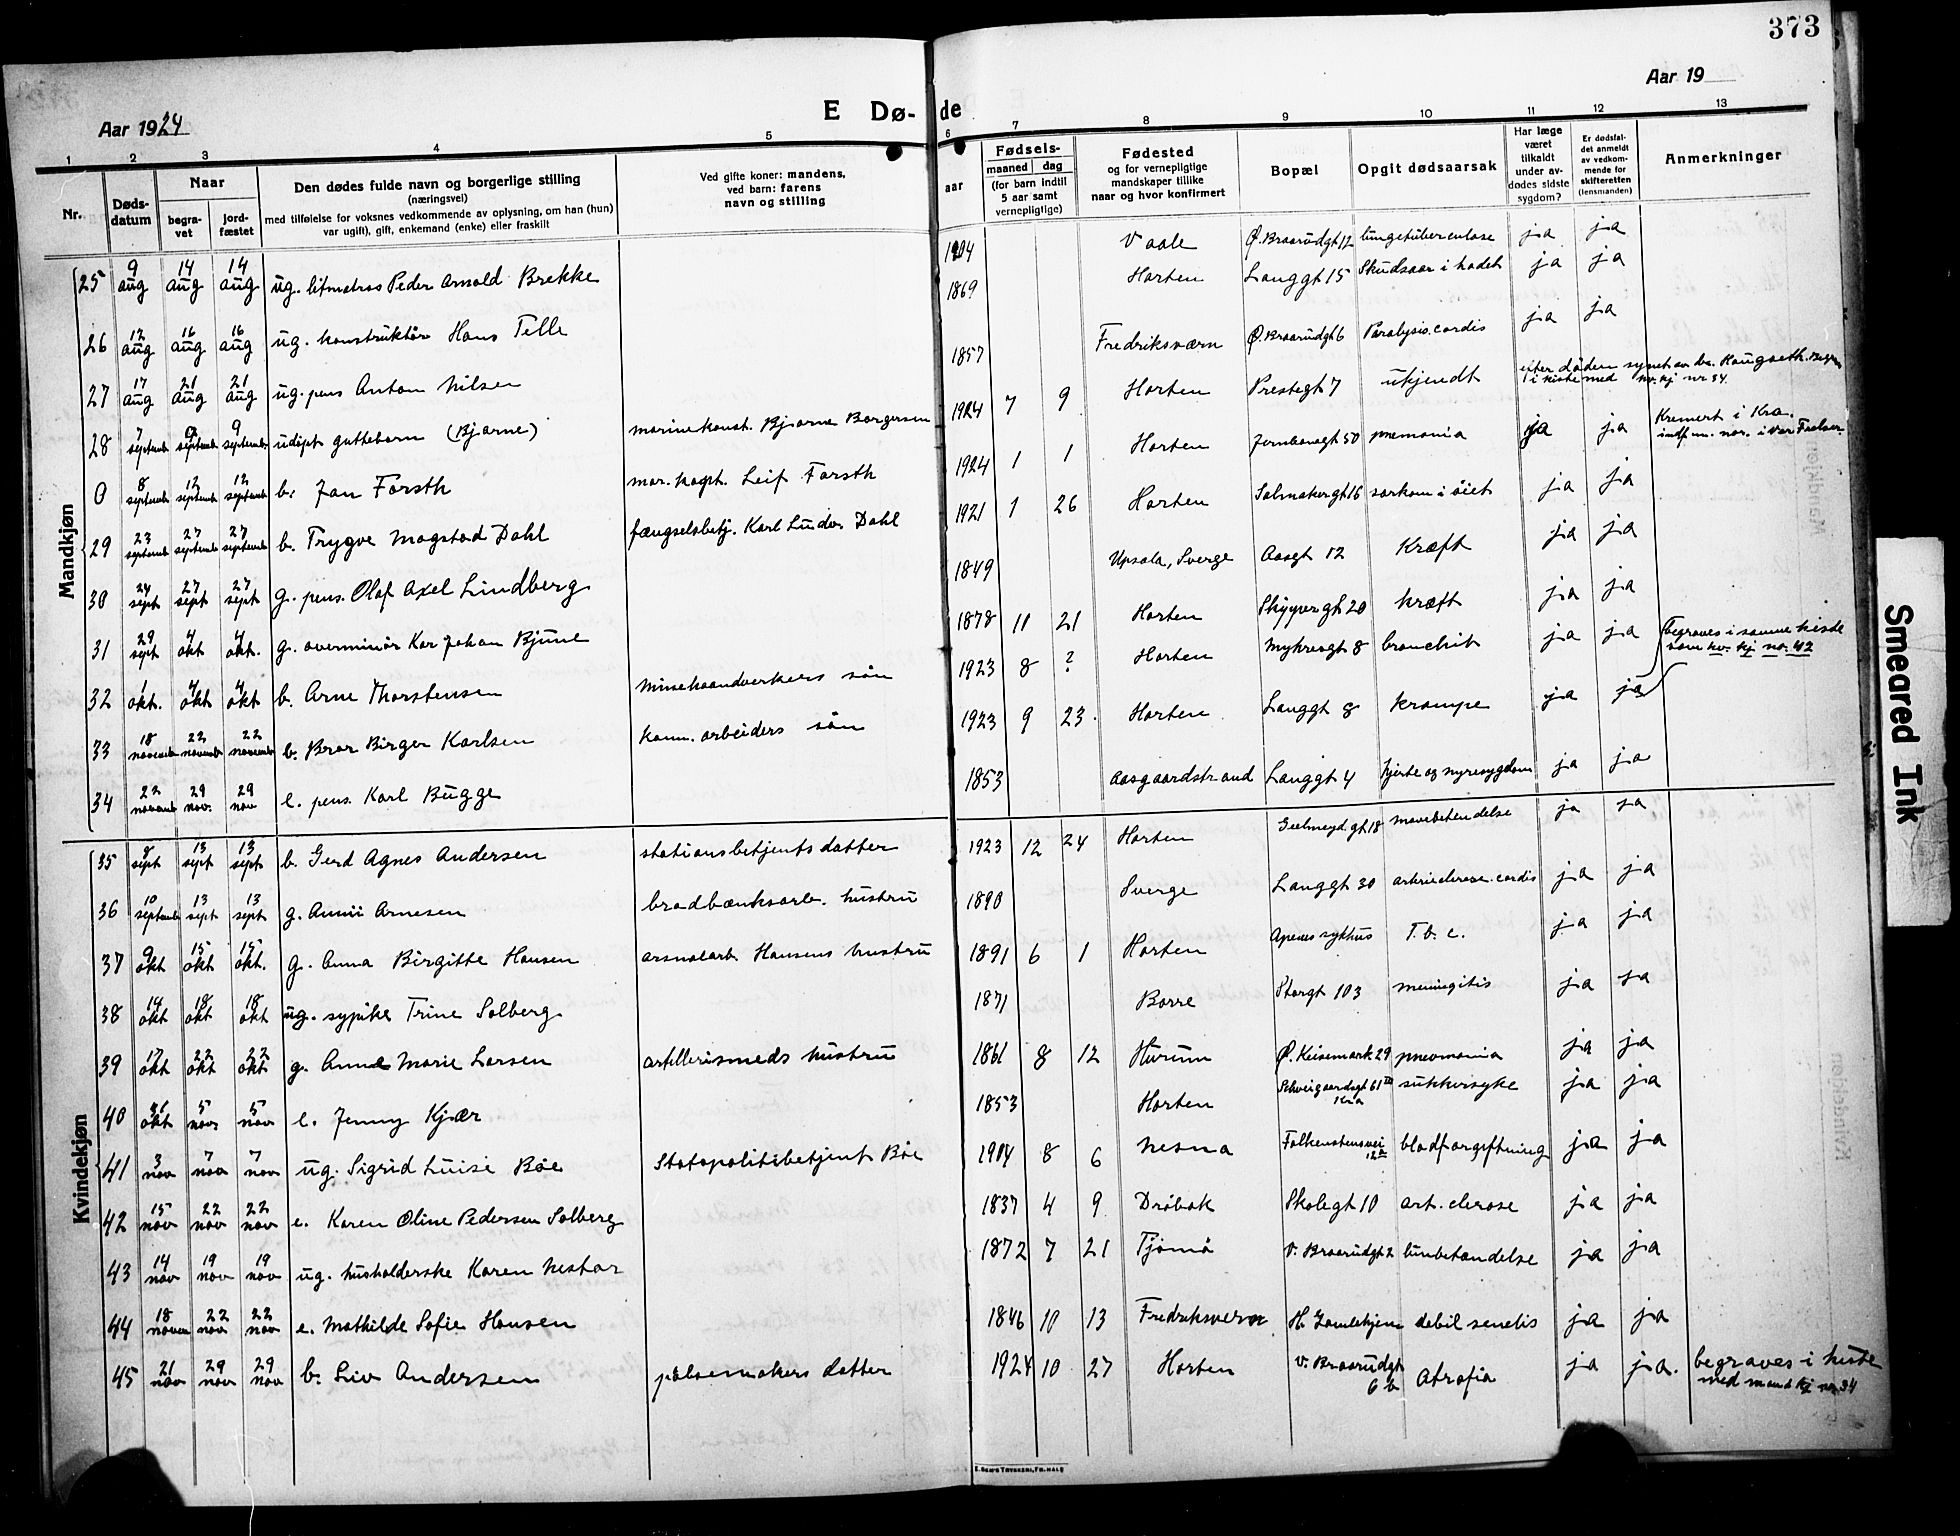 373
Aar 1924
E Dø-de
Aar 19
1 2 3 4 5 6 7 8 9 10 11 12 13
Nr.
Døds-datum
Naar
begra-vet
jord-fæstet
Den dødes fulde navn og borgerlige stilling
(næringsvei)
med tilføielse for voksnes vedkommende av oplysning, om han (hun)
var ugift), gift, enkemand (enke) eller fraskilt
Ved gifte koner: mandens,
ved barn: farens
navn og stilling
aar
Fødsels-
maaned dag
(for barn indtil
5 aar samt
vernepligtige)
Fødested
og for vernepligtige
mandskaper tillike
naar og hvor konfirmert
Bopæl
Opgit dødsaarsak
Har læge
været
tilkaldt
under av-
dødes sidste
sygdom?
Er dødsfal-
det anmeldt
av vedkom-
mende for
skifteretten
(lensmanden)
Anmerkninger
Mandkjøn
25 9 aug 14 aug 14 aug ug. litmatros Peder Arnold Brekke 1904 Vaale Ø. Braarudgt 12 lungetuberculose ja ja
26 12 aug 16 aug 16 aug ug. konstruktør Hans Telle 1869 Horten Langgt 15 Skudsaar i hodet ja ja
27 17 aug 21 aug 21 aug ug. pens Anton Nilsen 1857 Fredriksværn Ø. Braarudgt 6 Paralysis cordis ja ja
28 7 septemb 9 septemb 9 septemb udøpt guttebarn (Bjarne) marinekonst. Bjarne Borgersen 1924 7 9 Horten Prestegt 7 ukjendt efter døden synet av dr. Haugseth. Begr. i kiste med kv. kj nr 34.
0 8 septemb 12 septemb 12 septemb b. Jan Forsth mar. kapt. Leif Forsth 1924 1 1 Horten Jernbanegt 50 pnemonia ja ja Kremert i Kra.
29 23 septemb 27 septemb 27 septemb b. Trygve Magstad Dahl fængselsbetj. Karl Ludv. Dahl 1921 1 26 Horten Salmakergt 16 sarkom i øiet ja ja
30 24 sept 27 sept 27 sept g. pens. Olaf Axel Lindberg 1849 Upsala, Sverge Aasgt 12 Kræft ja ja
31 29 sept 4 okt 4 okt. g. overminør Kar Johan Bjune 1878 11 21 Horten Skippergt 20 kræft ja ja
32 1 okt. 4 okt 4 okt b. Arne Thorstensen minehaandverkers søn 1923 8 ? Horten Nykreogt 8 bronchit ja ja Begraves i samme kiste som kv. kj no. 42
33 18 novemb 22 novemb 22 novemb b. Bror Birger Karlsen kom. arbeiders søn 1923 9 23. Horten Langgt 8 krampe ja ja
34 22 novemb 29 nov. 29 nov e. pens. Karl Bugge 1853 Aasgaardstrand Langgt 4 hjerte og nyresygdom ja ja
Kvindekjøn
35 8 sept 13 sept 13 sept b. Gerd Agnes Andersen stationsbetjents datter 1923 12 24 Horten Geelmeyd. gt 18 mavebetendelse ja ja
36 10 septemb 13 sept 13 sept g. Annii Arnesen brødbænksarb. hustru 1890 Sverge Langgt 30 arkriclerose. cordis ja ja
37 9 okt 15 okt 15 okt. g. Anna Birgitte Hansen arsnalarb. Hansens hustru 1891 6 1 Horten Apenes sykhus T. b. c. ja ja
38 14 okt 18 okt 18 okt ug. sypike Trine Solberg 1871 Borre Storgt 103 meningitis ja ja
39 17 okt 22 okt 22 okt g. Anna Marie Larsen artillerismeds hustru 1861 8 12 Hurum Ø. Keisemark 29 pneomonia ja ja
40 31 okt 5 nov 5 nov e. Jenny Kjær 1853 Horten Schweigaardsgt 61 III Kra sukkersyke ja ja
41 3 nov 7 nov 7 nov ug. Sigrid Luise Bøe Statspolitibetjent Bøe 1904 8 6 Nesna Falkenstensvei 12b blodforgiftning ja ja
42 15 nov 22 nov 22 nov e. Karen Oline Pedersen Solberg 1837 4 9 Drøbak Skolegt 10 art. clerose ja ja
43 14 nov 19 nov 19 nov ug. husholderske Karen Nestar 1872 7 21 Tjømø V. Braarudgt 2 lunbetændelse ja ja
44 18 novem 22 nov 22 nov e. Mathilde Sofie Hansen 1846 10 13 Fredriksvern H. Gamlehjem debil senelis ja ja
45 21 nov 29 nov 29 nov b. Liv Andersen pølsemakers datter 1924 10 27 Horten V. Braarudgt 6b Atrofia ja ja. begraves i kiste med mand kj no 34
Smeared Ink